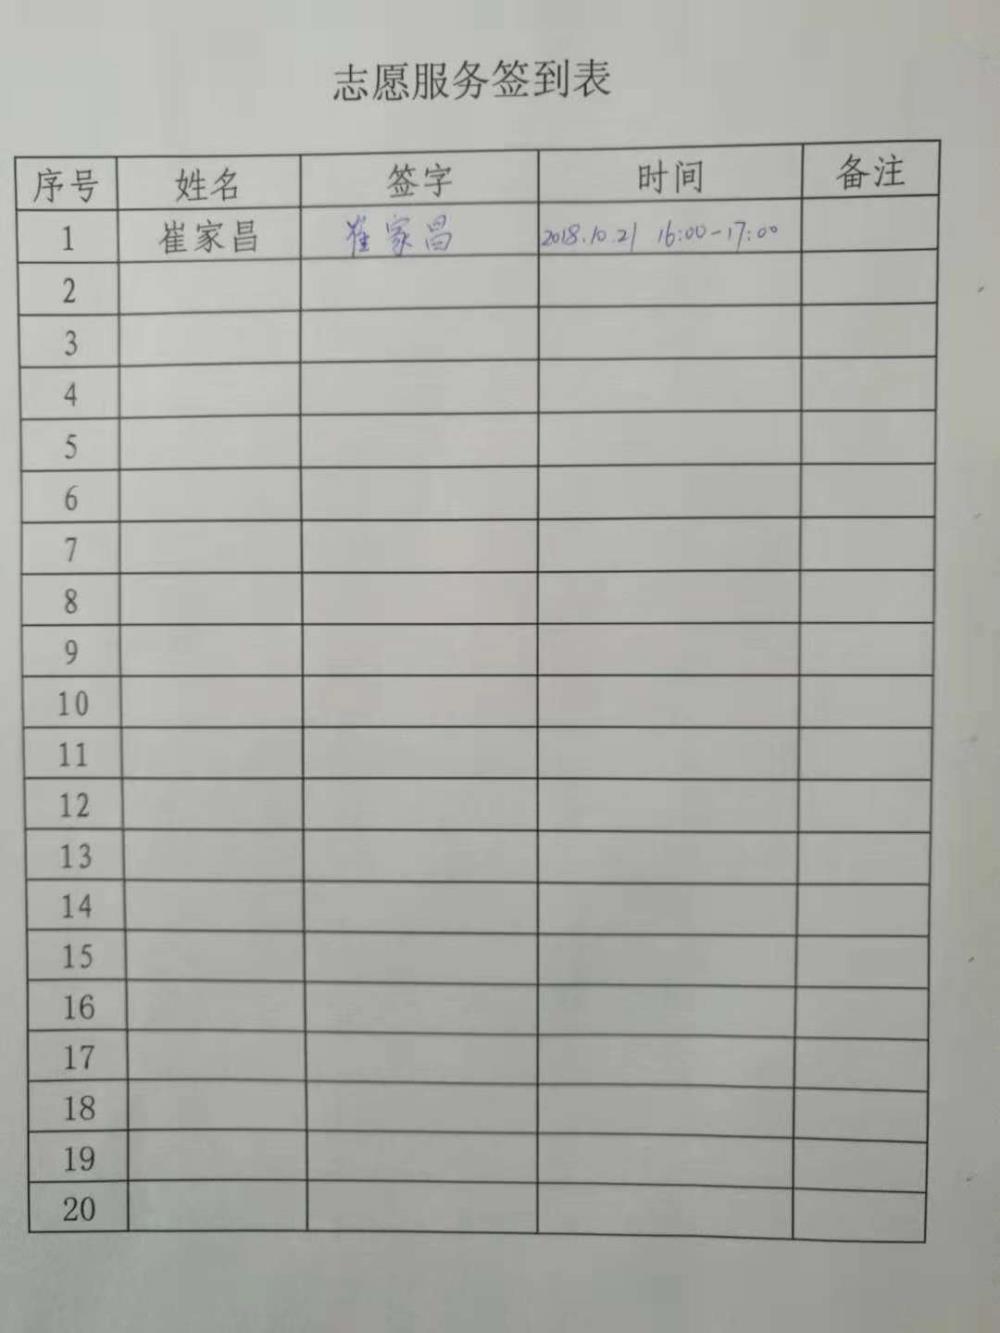 志愿服务签到表
序号 姓名 签字 时间 备注
1 崔家昌 崔家昌 2018.10.21 16:00-17:00
2
3
4
5
6
7
8
9
10
11
12
13
14
15
16
17
18
19
20